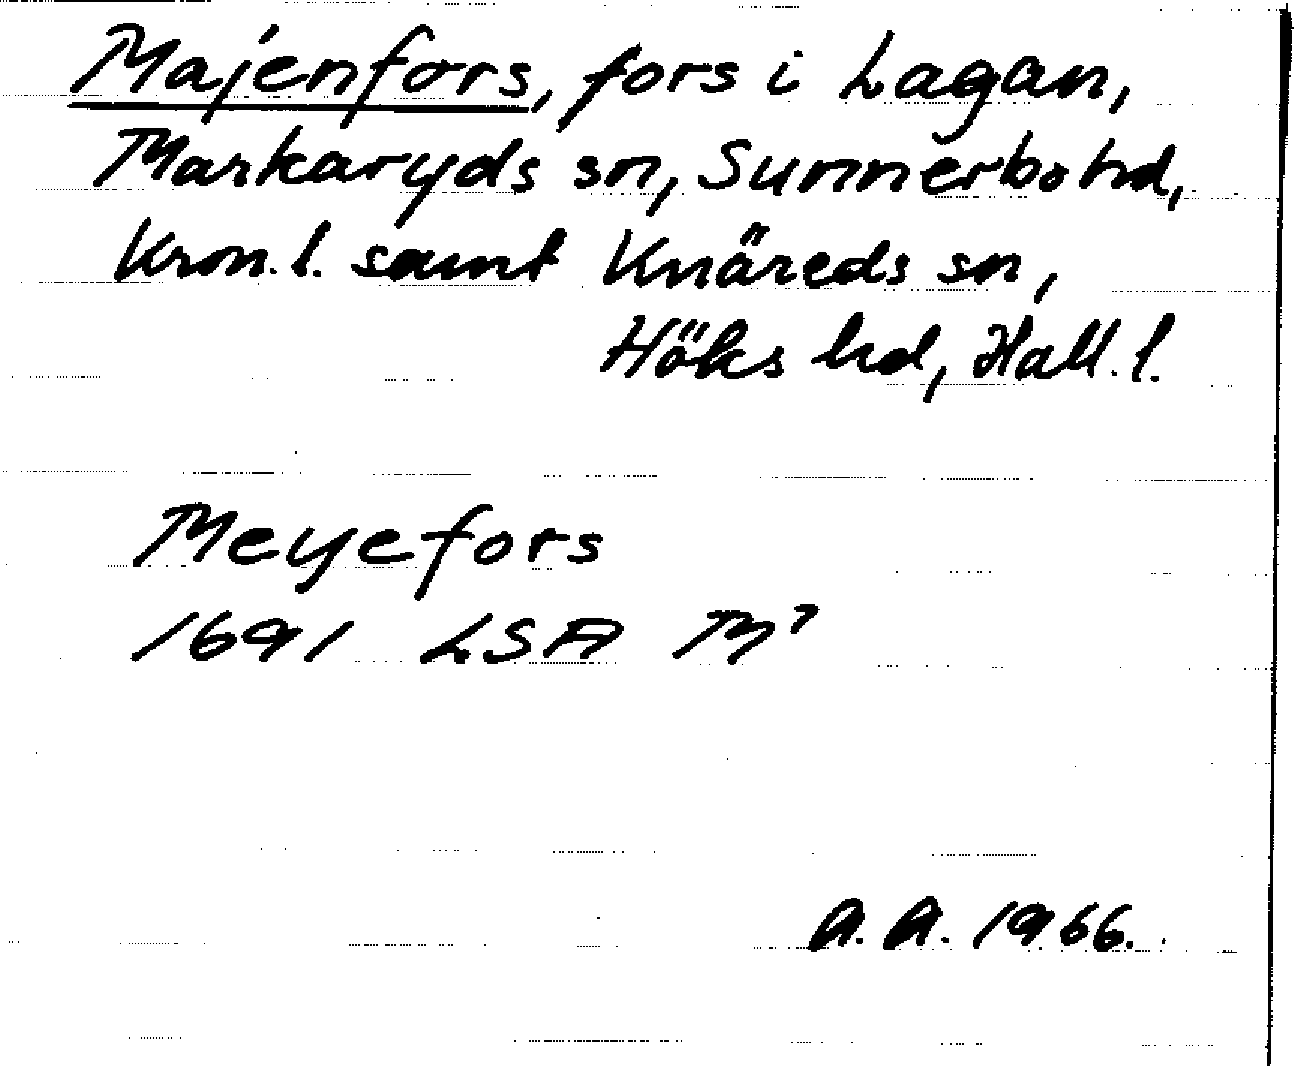 Majenfors, fors i Lagan,
Markaryds sn, Sunnerbo hd,
Kron. l. samt Knäreds sn,
Höks hd, Hall. l.
Meyefors
1691 LSA M⁷
A. A. 1966.